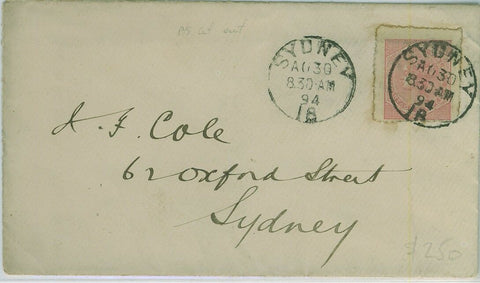 as cut out
SYDNEY
AU 30
8.30 AM
94
18
SYDNEY
AU 30
8.30 AM
94
18
A. F. Cole
62 Oxford Street
Sydney
$250